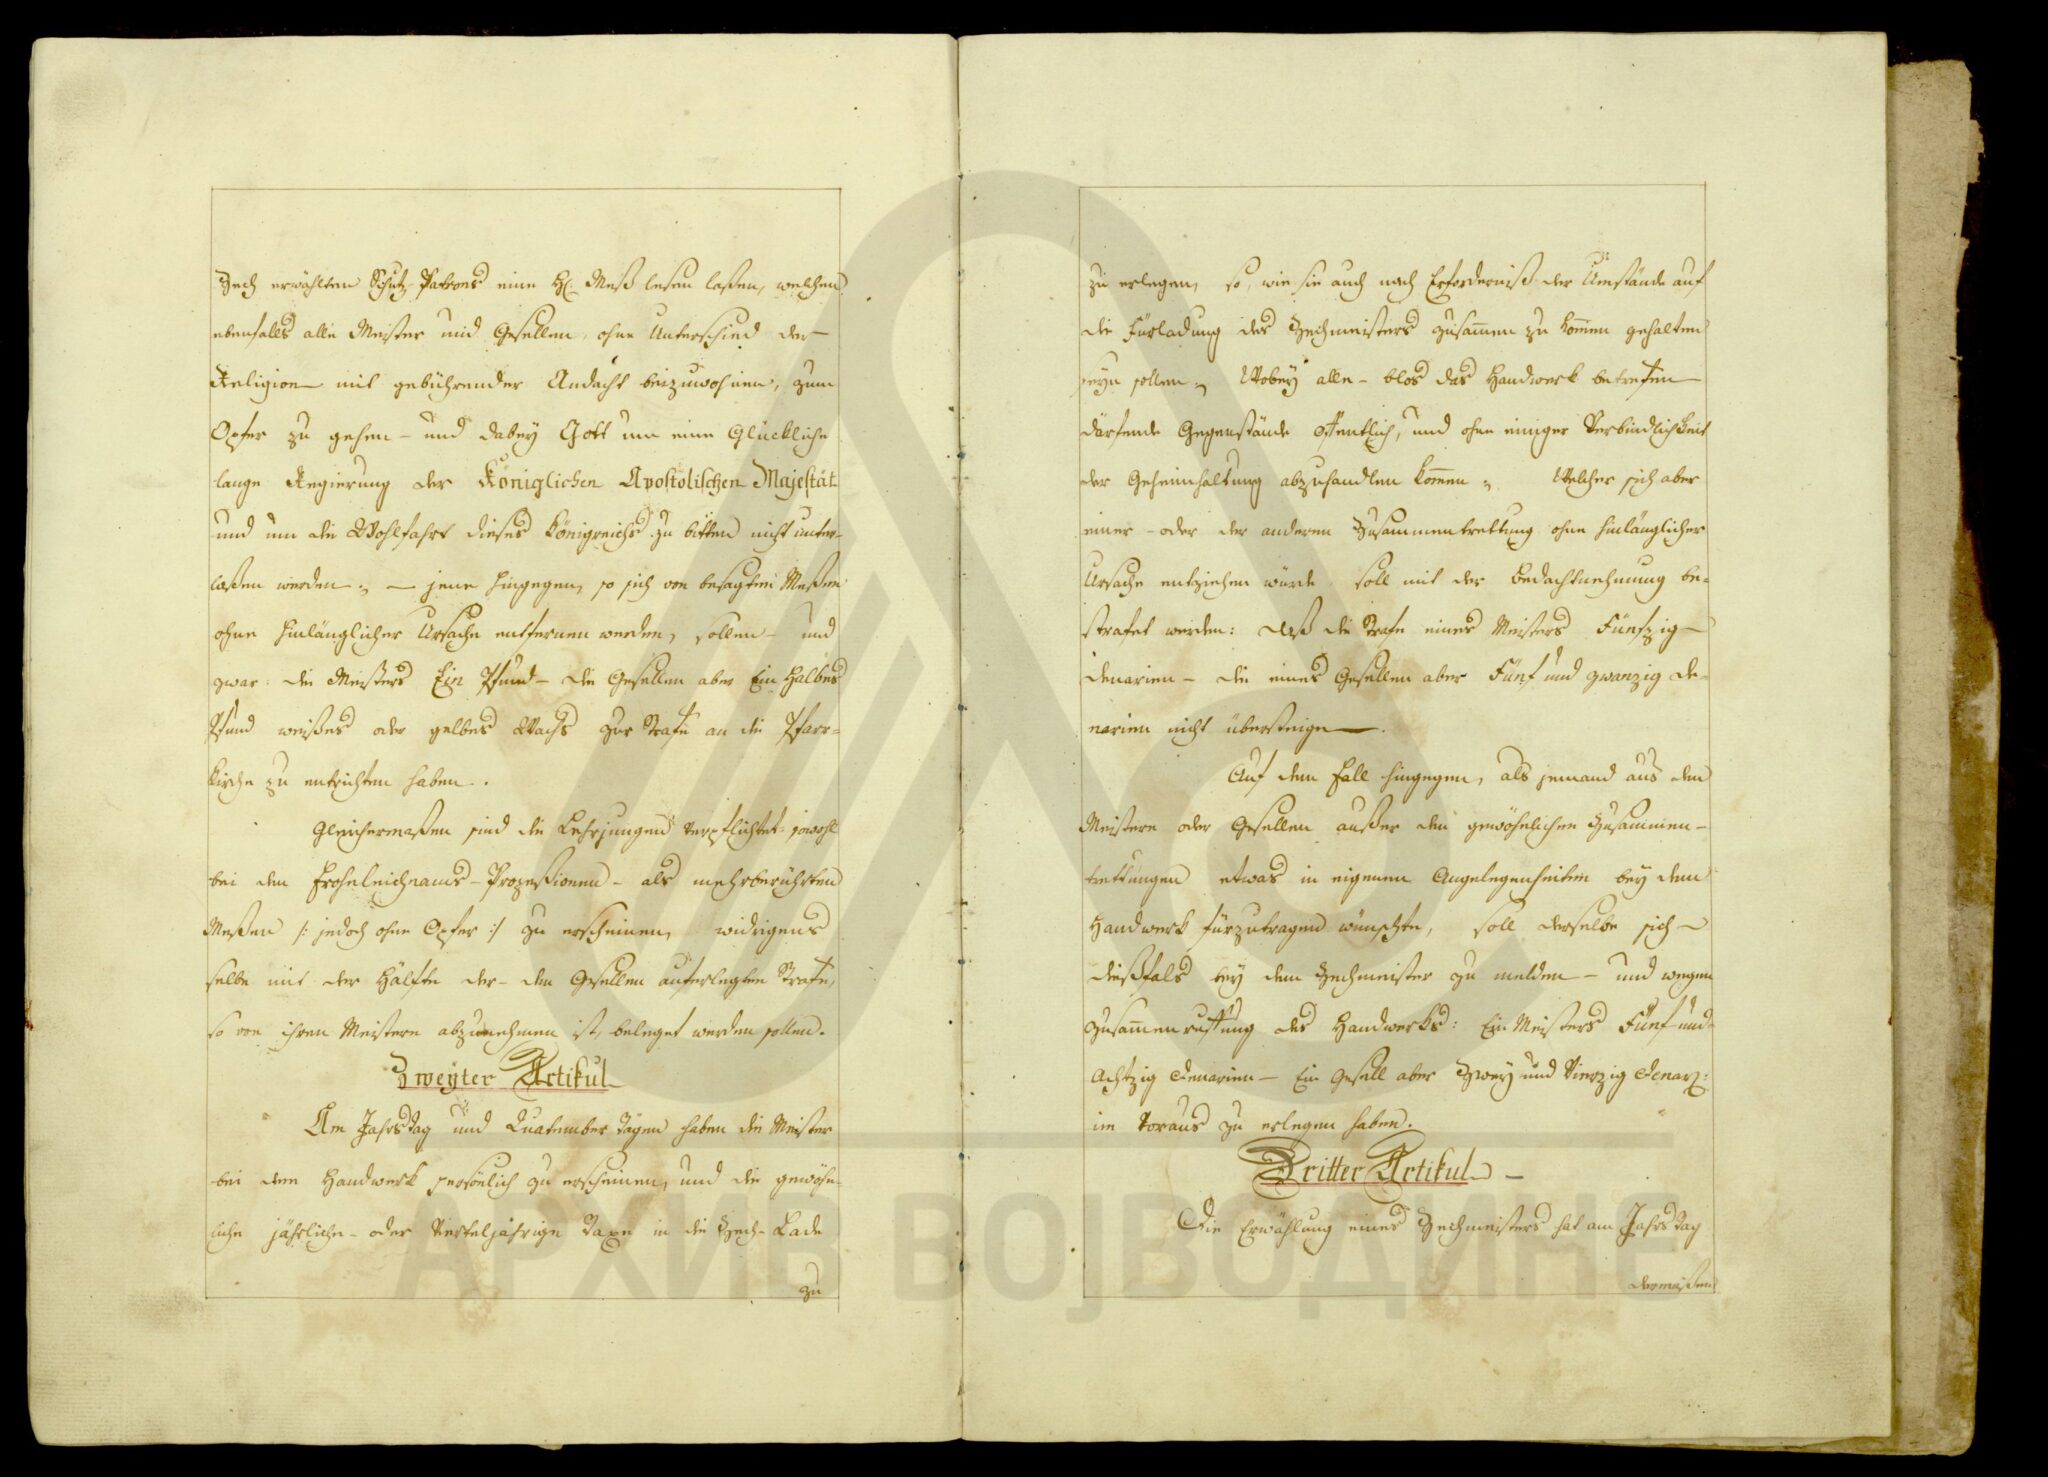 Zech erwählten Schutz-Patrons eine Hl: Meß lesen laßen, welchen
ebenfalls alle Meister und Gesellen, ohne Unterschied der
Religion mit gebührender Andacht beizuwohnen, zum
Opfer zu gehen – und dabey Gott um eine Glückliche
lange Regierung der Königlichen Apostolischen Majestät
und um die Wohlfahrt dieses Königreichs zu bitten nicht unter-
laßen werden; – jene hingegen, so sich von besagten Meßen
ohne hinlänglicher Ursache entfernen werden, sollen – und
zwar: die Meisters Ein Pfund – die Gesellen aber Ein Halbes
Pfund weißes oder gelbes Wachs zur Strafe an die Pfarr-
kirche zu entrichten haben.
Gleichermaßen sind die Lehrjungen verpflichtet – sowohl
bei den Frohnleichnams-Prozeßionen – als mehrberührten
Meßen /: jedoch ohne Opfer :/ zu erscheinen, widrigens
selbe mit der Hälfte der – den Gesellen auferlegten Strafe,
so von ihren Meistern abzunehmen ist, beleget werden sollen.
Zweyter Artikul
Am Jahrs Tag und Quatember Tägen haben die Meister
bei dem Handwerk persönlich zu erscheinen, und die gewöhn-
liche jährliche – oder Vierteljährige Taxe in die Zech-Lade
zu
zu erlegen, so, wie sie auch nach Erforderniß der Umstände auf
die Fürladung des Zechmeisters zusam̄en zu kom̄en gehalten
seyn sollen; Wobey alle – blos das Handwerk betrefen
därfende Gegenstände öffentlich, und ohne einiger Verbindlichkeit
der Geheimhaltung abzuhandlen kom̄en; Welcher sich aber
einer – oder der anderen Zusammentrettung ohne hinlänglicher
Ursache entziehen würde, soll mit der Bedachtnehmung be-
strafet werden: daß die Strafe eines Meisters Fünfzig
Denarien – die eines Gesellen aber Fünf und zwanzig De-
narien nicht übersteige.
Auf dem Fall hingegen, als jemand aus den
Meistern oder Gesellen außer den gewöhnlichen Zusammen-
trettungen etwas in eigenen Angelegenheiten bey dem
Handwerk fürzutragen wünschte, soll derselbe sich
dießfals bey dem Zechmeister zu melden – und wegen
Zusam̄enruffung des Handwerks: Ein Meisters Fünf und
Achtzig Denarien – Ein Gesell aber Zwey und Vierzig Denarz:
im Voraus zu erlegen haben.
Dritter Artikul –
Die Erwählung eines Zechmeisters hat am Jahrs Tag
dermaßen
АРХИВ ВОЈВОДИНЕ